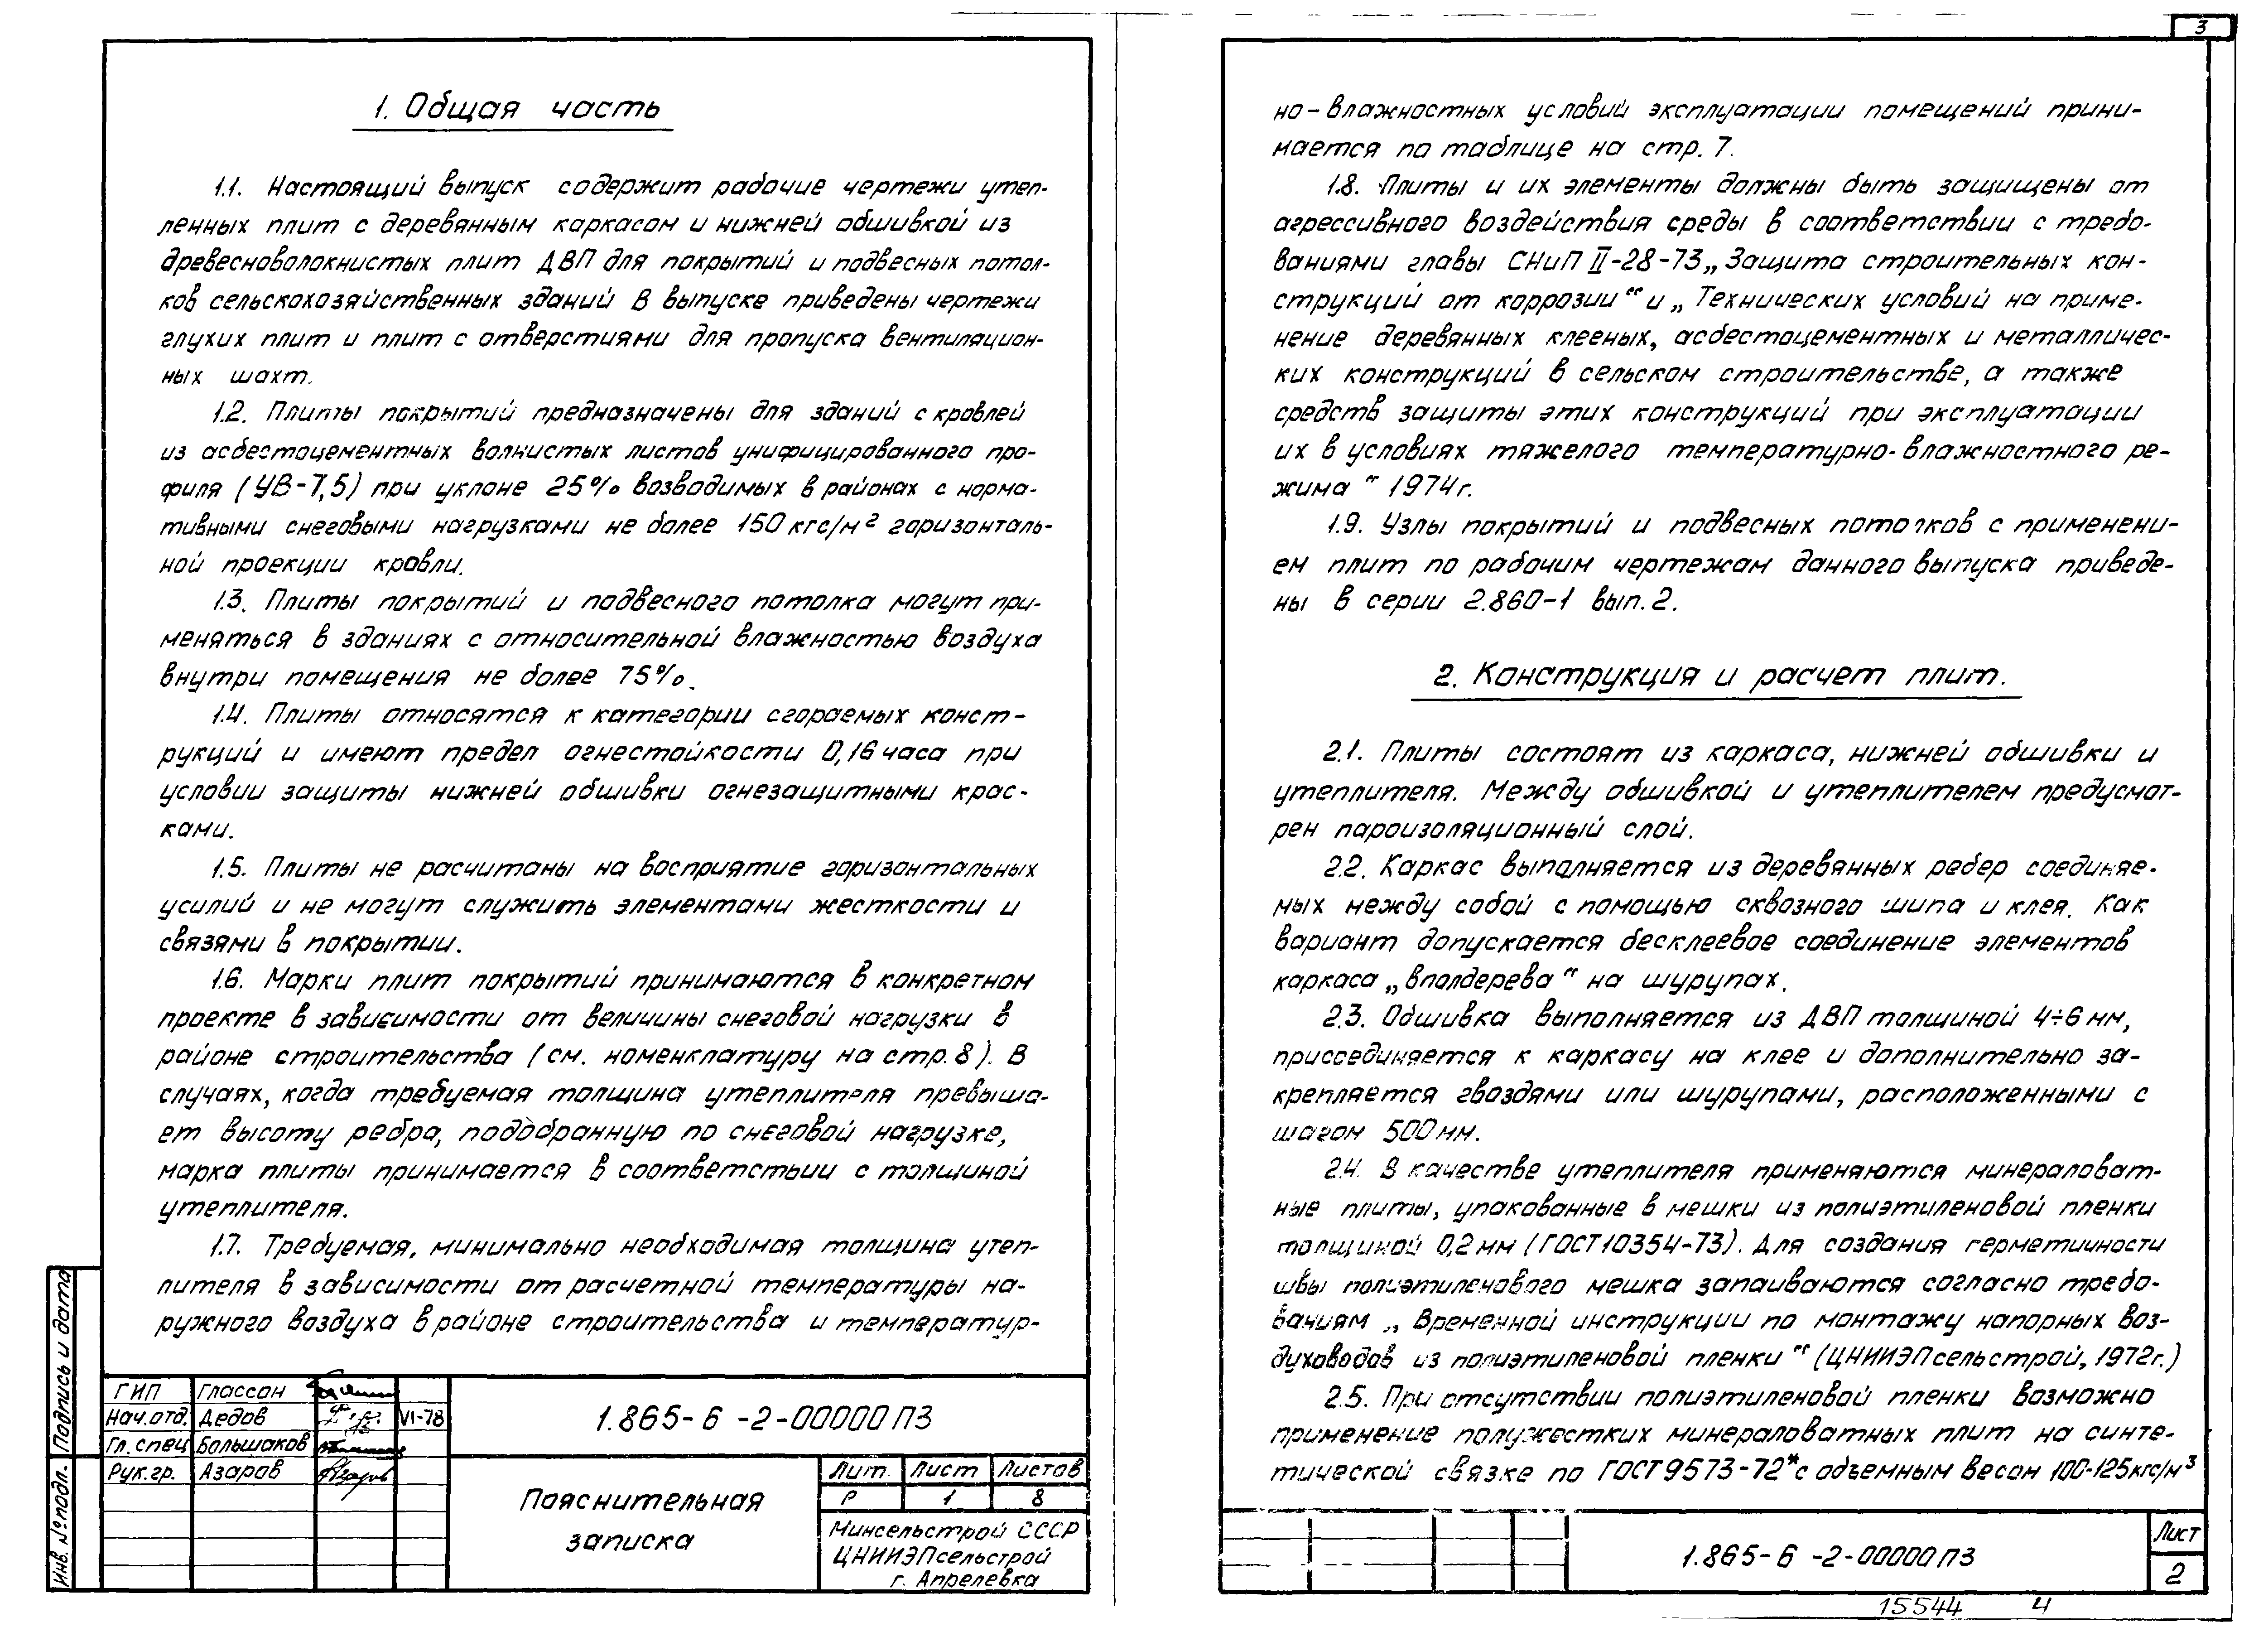 1. Общая часть
1.1. Настоящий выпуск содержит рабочие чертежи утеп-
ленных плит с деревянным каркасом и нижней обшивкой из
древесноволокнистых плит ДВП для покрытий и подвесных потол-
ков сельскохозяйственных зданий В выпуске приведены чертежи
глухих плит и плит с отверстиями для пропуска вентиляцион-
ных шахт.
1.2. Плиты покрытий предназначены для зданий с кровлей
из асбестоцементных волнистых листов унифицированного про-
филя (УВ-7,5) при уклоне 25% возводимых в районах с норма-
тивными снеговыми нагрузками не более 150 кгс/м² горизонталь-
ной проекции кровли.
1.3. Плиты покрытий и подвесного потолка могут при-
меняться в зданиях с относительной влажностью воздуха
внутри помещения не более 75%.
1.4. Плиты относятся к категории сгораемых конст-
рукций и имеют предел огнестойкости 0,16 часа при
условии защиты нижней обшивки огнезащитными крас-
ками.
1.5. Плиты не расчитаны на восприятие горизонтальных
усилий и не могут служить элементами жесткости и
связями в покрытии.
1.6. Марки плит покрытий принимаются в конкретном
проекте в зависимости от величины снеговой нагрузки в
районе строительства (см. номенклатуру на стр. 8). В
случаях, когда требуемая толщина утеплителя превыша-
ет высоту ребра, подобранную по снеговой нагрузке,
марка плиты принимается в соответствии с толщиной
утеплителя.
1.7. Требуемая, минимально необходимая толщина утеп-
лителя в зависимости от расчетной температуры на-
ружного воздуха в районе строительства и температур-
Подпись и дата
Инв. № подл.
ГИП Глассон
Нач.отд. Дедов VI-78
Гл. спец Большаков
Рук.гр. Азаров
1.865-6-2-00000ПЗ
Пояснительная
записка
Лит. Лист Листов
Р 1 8
Минсельстрой СССР
ЦНИИЭПсельстрой
г. Апрелевка
3
но-влажностных условий эксплуатации помещений прини-
мается по таблице на стр. 7.
1.8. Плиты и их элементы должны быть защищены от
агрессивного воздействия среды в соответствии с требо-
ваниями главы СНиП II-28-73 „Защита строительных кон-
струкций от коррозии" и „Технических условий на приме-
нение деревянных клееных, асбестоцементных и металличес-
ких конструкций в сельском строительстве, а также
средств защиты этих конструкций при эксплуатации
их в условиях тяжелого температурно-влажностного ре-
жима" 1974г.
1.9. Узлы покрытий и подвесных потолков с применени-
ем плит по рабочим чертежам данного выпуска приведе-
ны в серии 2.860-1 вып. 2.
2. Конструкция и расчет плит.
2.1. Плиты состоят из каркаса, нижней обшивки и
утеплителя. Между обшивкой и утеплителем предусмот-
рен пароизоляционный слой.
2.2. Каркас выполняется из деревянных ребер соединяе-
мых между собой с помощью сквозного шипа и клея. Как
вариант допускается бесклеевое соединение элементов
каркаса „вполдерева" на шурупах.
2.3. Обшивка выполняется из ДВП толщиной 4÷6 мм,
присоединяется к каркасу на клее и дополнительно за-
крепляется гвоздями или шурупами, расположенными с
шагом 500 мм.
2.4. В качестве утеплителя применяются минераловат-
ные плиты, упакованные в мешки из полиэтиленовой пленки
толщиной 0,2 мм (ГОСТ 10354-73). Для создания герметичности
швы полиэтиленового мешка запаиваются согласно требо-
ваниям „Временной инструкции по монтажу напорных воз-
духоводов из полиэтиленовой пленки" (ЦНИИЭПсельстрой, 1972г.)
2.5. При отсутствии полиэтиленовой пленки возможно
применение полужестких минераловатных плит на синте-
тической связке по ГОСТ 9573-72* с объемным весом 100-125кгс/м³
1.865-6-2-00000ПЗ
Лист
2
15544 4